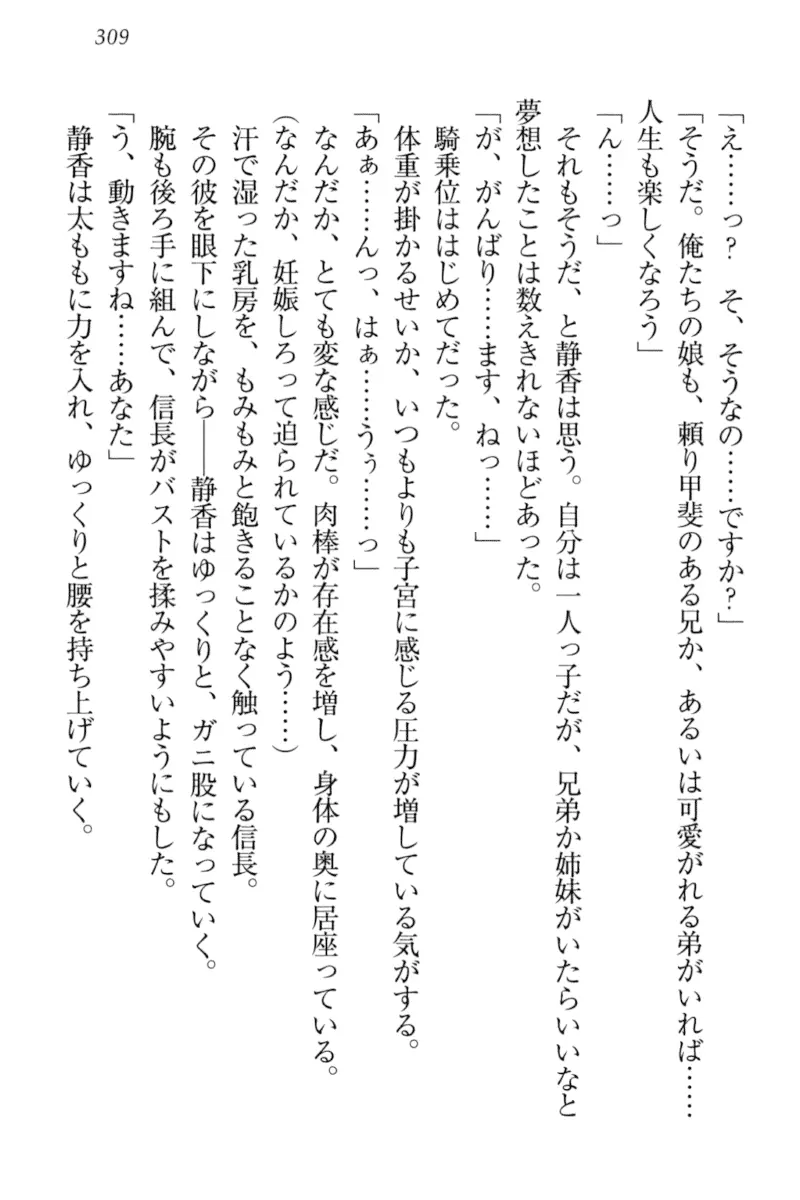 309
「え……っ？　そ、そうなの……ですか？」
「そうだ。俺たちの娘も、頼り甲斐のある兄か、あるいは可愛がれる弟がいれば……
人生も楽しくなろう」
「ん……っ」
それもそうだ、と静香は思う。自分は一人っ子だが、兄弟か姉妹がいたらいいなと
夢想したことは数えきれないほどあった。
「が、がんばり……ます、ねっ……」
騎乗位ははじめてだった。
体重が掛かるせいか、いつもよりも子宮に感じる圧力が増している気がする。
「あぁ……んっ、はぁ……うぅ……っ」
なんだか、とても変な感じだ。肉棒が存在感を増し、身体の奥に居座っている。
（なんだか、妊娠しろって迫られているかのよう……）
汗で湿った乳房を、もみもみと飽きることなく触っている信長。
その彼を眼下にしながら――静香はゆっくりと、ガニ股になっていく。
腕も後ろ手に組んで、信長がバストを揉みやすいようにもした。
「う、動きますね……あなた」
静香は太ももに力を入れ、ゆっくりと腰を持ち上げていく。